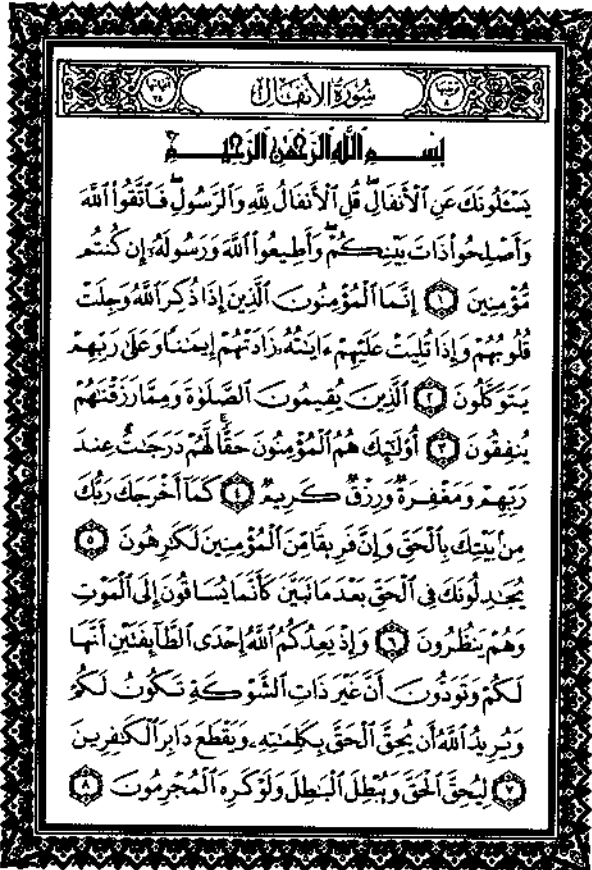 ترتيبها ٨
سُورَةُ الأَنفَالِ
آياتها ٧٥
بِسْمِ ٱللَّهِ ٱلرَّحْمَٰنِ ٱلرَّحِيمِ
يَسْـَٔلُونَكَ عَنِ ٱلْأَنفَالِۖ قُلِ ٱلْأَنفَالُ لِلَّهِ وَٱلرَّسُولِۖ فَٱتَّقُوا۟ ٱللَّهَ
وَأَصْلِحُوا۟ ذَاتَ بَيْنِكُمْۖ وَأَطِيعُوا۟ ٱللَّهَ وَرَسُولَهُۥٓ إِن كُنتُم
مُّؤْمِنِينَ ١ إِنَّمَا ٱلْمُؤْمِنُونَ ٱلَّذِينَ إِذَا ذُكِرَ ٱللَّهُ وَجِلَتْ
قُلُوبُهُمْ وَإِذَا تُلِيَتْ عَلَيْهِمْ ءَايَٰتُهُۥ زَادَتْهُمْ إِيمَٰنًا وَعَلَىٰ رَبِّهِمْ
يَتَوَكَّلُونَ ٢ ٱلَّذِينَ يُقِيمُونَ ٱلصَّلَوٰةَ وَمِمَّا رَزَقْنَٰهُمْ
يُنفِقُونَ ٣ أُو۟لَٰٓئِكَ هُمُ ٱلْمُؤْمِنُونَ حَقًّاۚ لَّهُمْ دَرَجَٰتٌ عِندَ
رَبِّهِمْ وَمَغْفِرَةٌ وَرِزْقٌ كَرِيمٌ ٤ كَمَآ أَخْرَجَكَ رَبُّكَ
مِنۢ بَيْتِكَ بِٱلْحَقِّ وَإِنَّ فَرِيقًا مِّنَ ٱلْمُؤْمِنِينَ لَكَٰرِهُونَ ٥
يُجَٰدِلُونَكَ فِى ٱلْحَقِّ بَعْدَ مَا تَبَيَّنَ كَأَنَّمَا يُسَاقُونَ إِلَى ٱلْمَوْتِ
وَهُمْ يَنظُرُونَ ٦ وَإِذْ يَعِدُكُمُ ٱللَّهُ إِحْدَى ٱلطَّآئِفَتَيْنِ أَنَّهَا
لَكُمْ وَتَوَدُّونَ أَنَّ غَيْرَ ذَاتِ ٱلشَّوْكَةِ تَكُونُ لَكُمْ
وَيُرِيدُ ٱللَّهُ أَن يُحِقَّ ٱلْحَقَّ بِكَلِمَٰتِهِۦ وَيَقْطَعَ دَابِرَ ٱلْكَٰفِرِينَ
٧ لِيُحِقَّ ٱلْحَقَّ وَيُبْطِلَ ٱلْبَٰطِلَ وَلَوْ كَرِهَ ٱلْمُجْرِمُونَ ٨